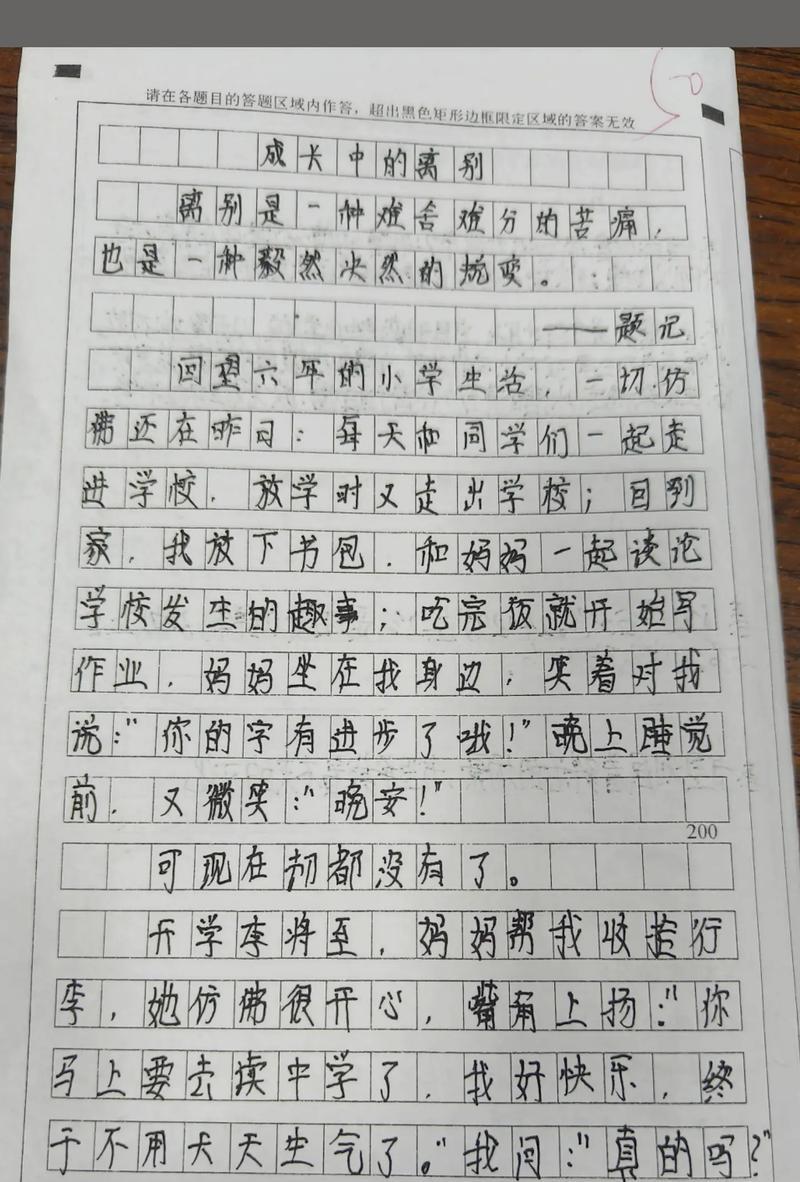 50
请在各题目的答题区域内作答，超出黑色矩形边框限定区域的答案无效
成长中的离别
离别是一种难舍难分的苦痛，
也是一种毅然决然的蜕变。
——题记
回望六年的小学生活，一切仿
佛还在昨日：每天和同学们一起走
进学校，放学时又走出学校；回到
家，我放下书包，和妈妈一起谈论
学校发生的趣事；吃完饭就开始写
作业，妈妈坐在我身边，笑着对我
说：“你的字有进步了哦！”晚上睡觉
前，又微笑：“晚安！”
200
可现在都没有了。
开学季将至，妈妈帮我收拾行
李，她仿佛很开心，嘴角上扬：“你
马上要去读中学了，我好快乐，终
于不用天天生气了。”我问：“真的吗？”